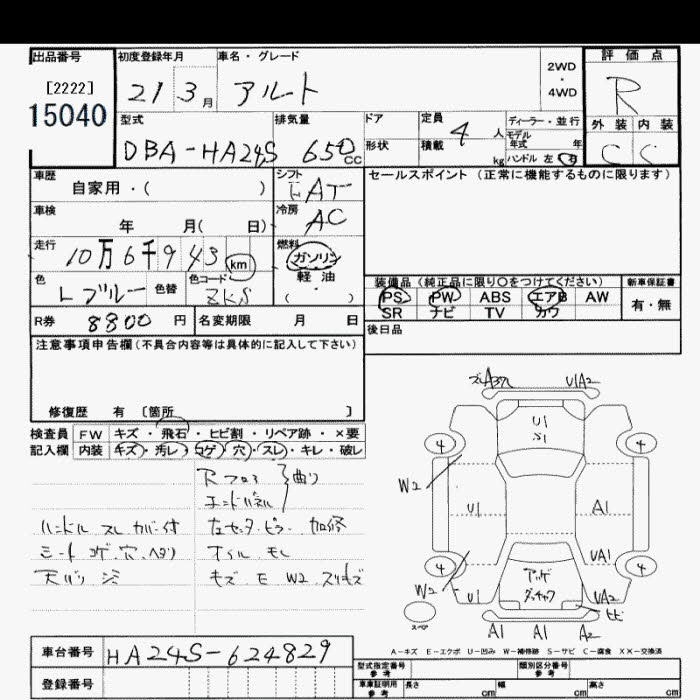 出品番号 初度登録年月 車名・グレード 2WD・4WD 評価点
[2222] 21 3月 アルト R
15040 型式 排気量 ドア 定員 ディーラー・並行 外装 内装
DBA-HA24S 650cc 形状 積載 4人 kg モデル年式 年 ハンドル 左 右 C C
車歴 自家用・( ) シフト FAT セールスポイント (正常に機能するものに限ります)
車検 年 月( 日) 冷房 AC
走行 10万6千943 km 燃料 ガソリン
軽・油
( )
色 Lブルー 色替 色コード ZKS 装備品 (純正品に限り○をつけてください) 新車保証書
PS PW ABS エアB AW 有・無
SR ナビ TV カワ
R券 8800円 名変期限 月 日 後日品
注意事項申告欄 (不具合内容等は具体的に記入して下さい)
修復歴 有 [箇所 ]
検査員 FW キズ・飛石・ヒビ割・リペア跡・×要
記入欄 内装 キズ・汚レ・コゲ・穴・スレ・キレ・破レ
Rフロア 曲り
エンドパネル
ハンドル スレ カバー付 左センターピラー 加修
シート コゲ 穴 ヘタリ オイル モレ
天バリ キズ E W2 スリキズ
A37 U1A2
U1
S1
4 4
W2 U1 A1
UA1
4 4
W2 U1 UA2
ヒビ
スペア A1 A1 A2
A-キズ E-エクボ U-凹み W-補修跡 S-サビ C-腐食 XX-交換済
車台番号 HA24S-624829
登録番号
型式指定番号 参考 類別区分番号 参考
車庫証明用 参考 長さ cm 幅 cm 高さ cm